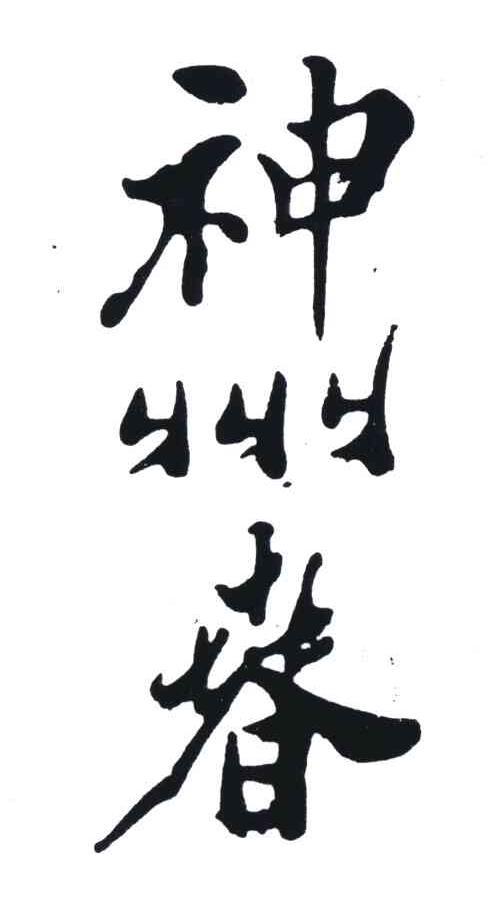 神州春